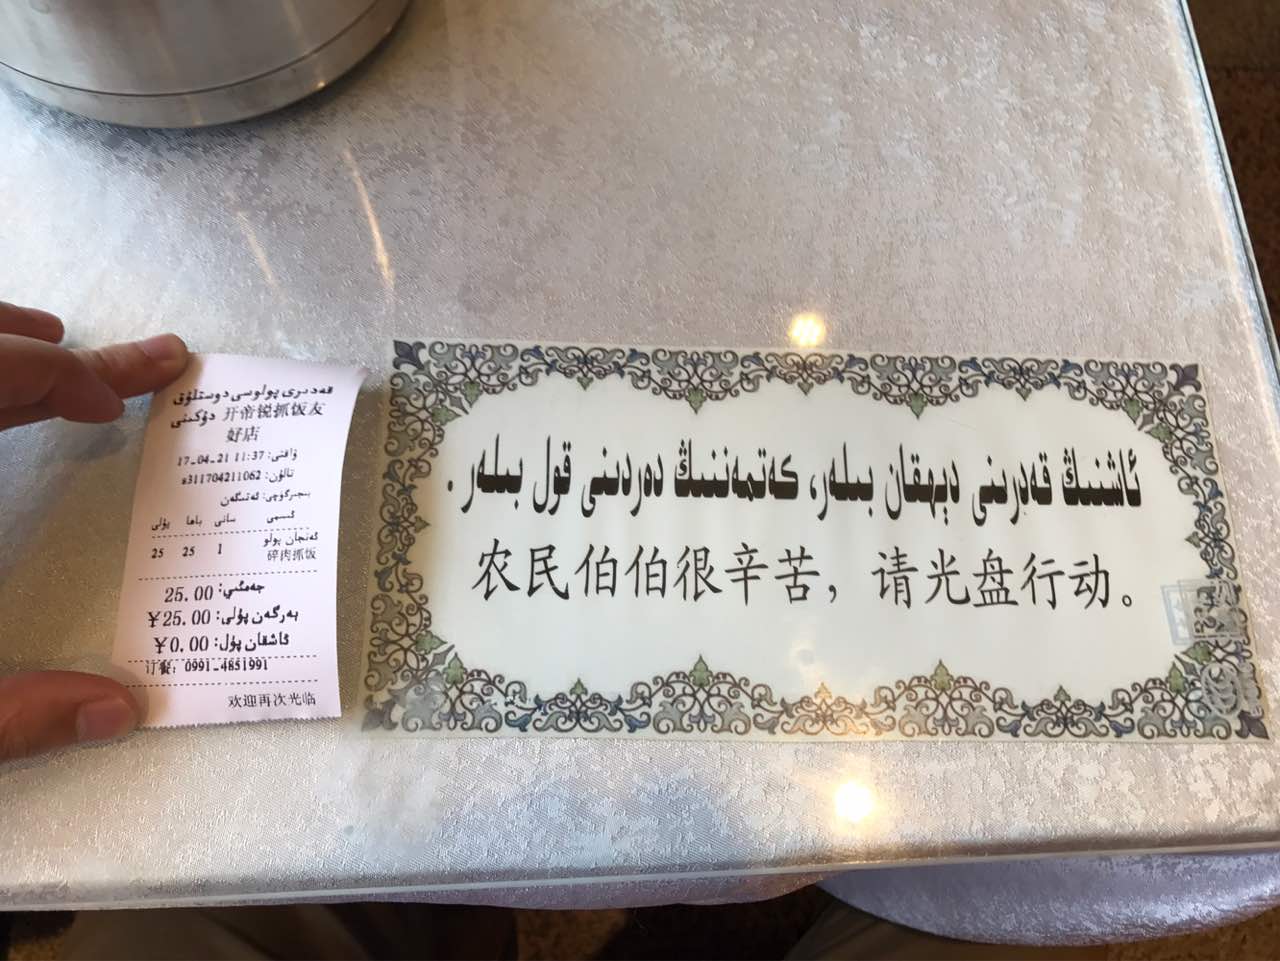 قەدىرى پولوسى دوستلۇق
دۇكىنى 开帝锐抓饭友
好店
ۋاقتى: 17-04-21 11:37
تالون: s311704211062
كىسمى سانى باھا پۇلى
ئەنجان پولو 1 25 25
碎肉抓饭
جەمئىي: 25.00
بەرگەن پۇلى: ¥25.00
ئاشقان پۇل: ¥0.00
订餐: 0991-4851991
欢迎再次光临
ئاشنىڭ قەدىرىنى دېھقان بىلەر، كەتمەننىڭ دەردىنى قول بىلەر.
农民伯伯很辛苦，请光盘行动。